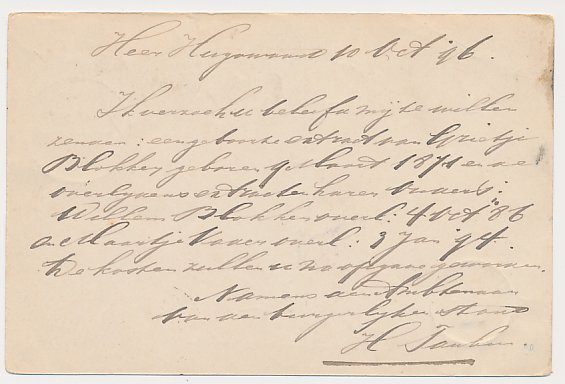 Heer Hugowaard 10 Oct 96.
Ik verzoek u beleefd mij te willen
zenden: een geboorte extract van Grietje
Blokker geboren 9 Maart 1871 en de
overlijdens extracten harer ouders:
Willem Blokker overl: 4 Oct 86
en Maartje Vader overl: 3 Jan 94.
De kosten zullen u na opgave geworden.
Namens den Ambtenaar
van den burgerlijken stand
H